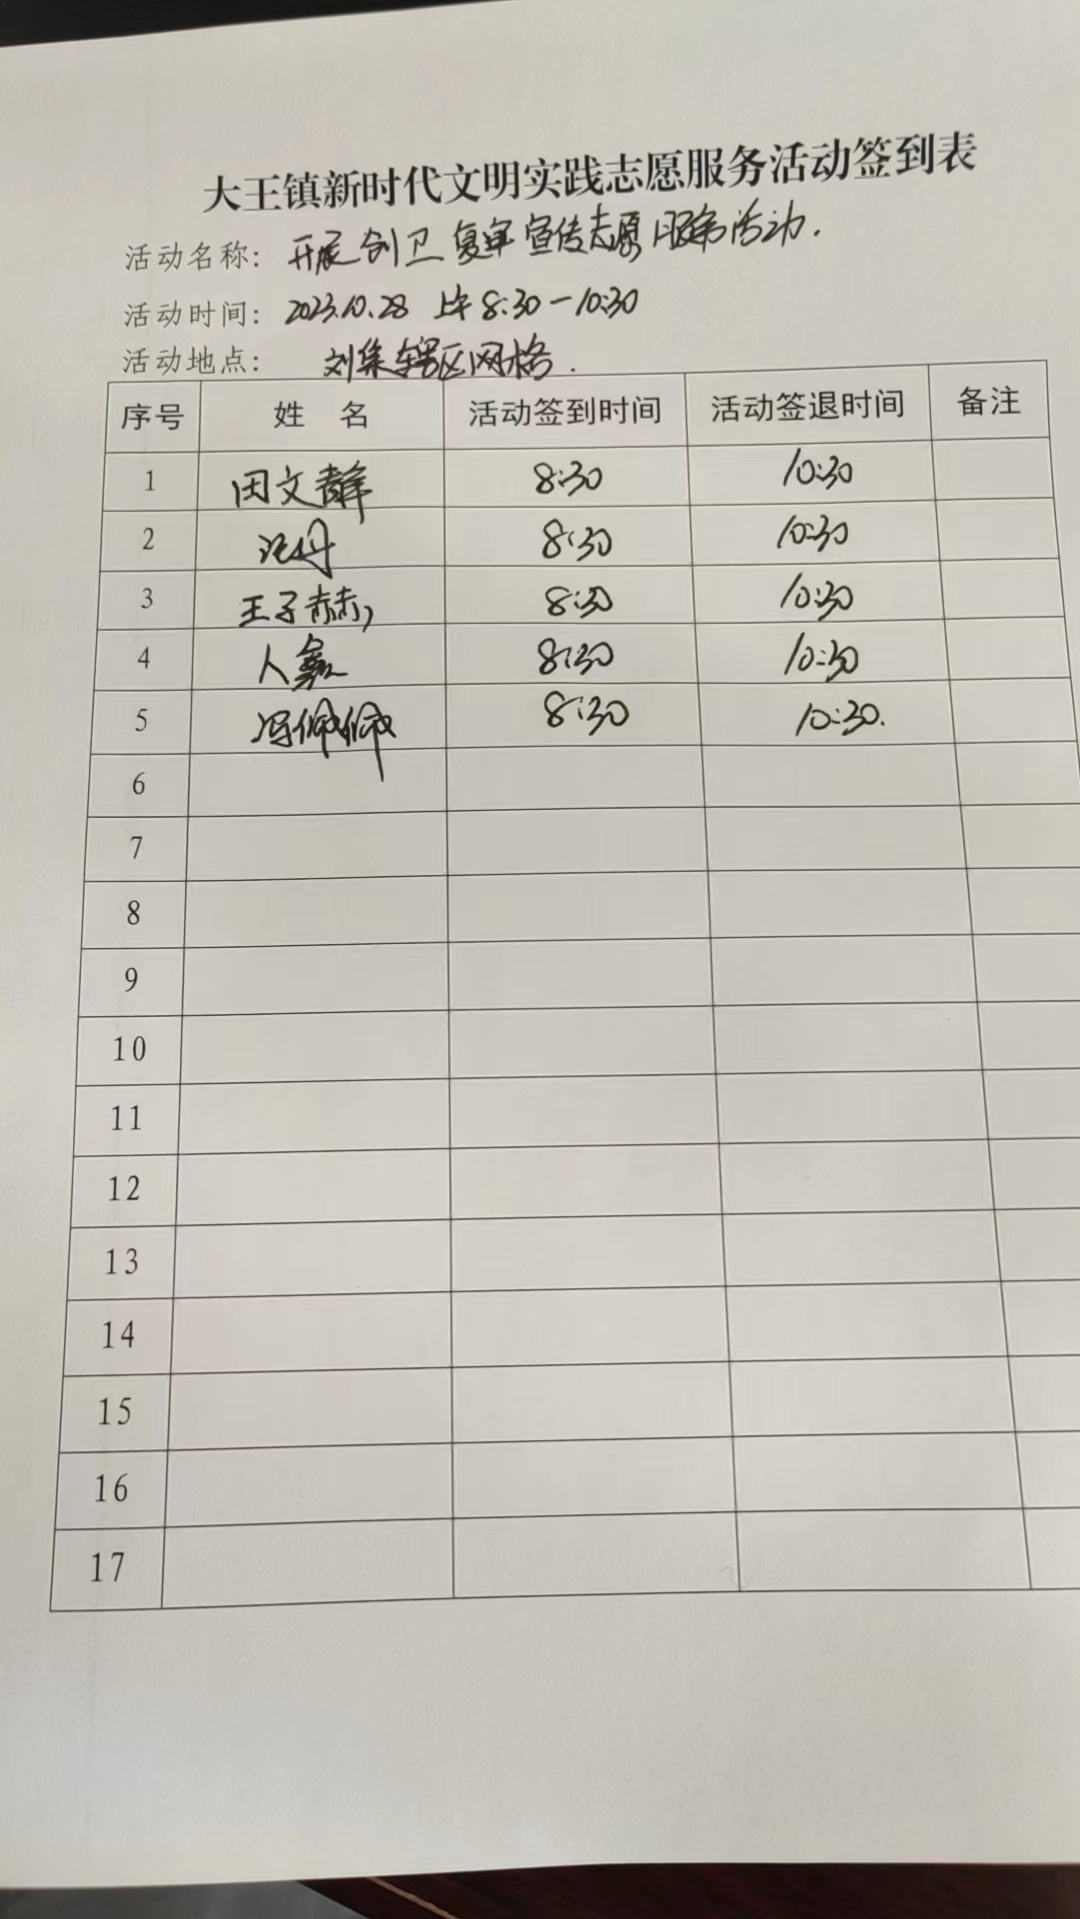 大王镇新时代文明实践志愿服务活动签到表
活动名称: 开展创卫复审宣传志愿服务活动.
活动时间: 2023.10.28 上午 8:30-10:30
活动地点: 刘集辖区网格.
序号 姓 名 活动签到时间 活动签退时间 备注
1 田文静 8:30 10:30
2 8:30 10:30
3 王子赫 8:30 10:30
4 8:30 10:30
5 冯佩佩 8:30 10:30.
6
7
8
9
10
11
12
13
14
15
16
17